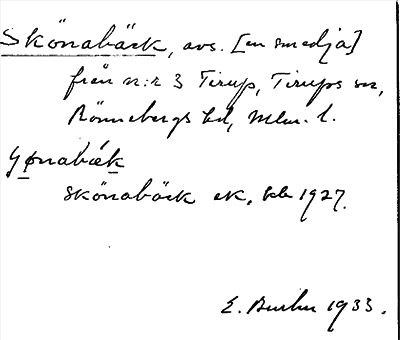 Skönabäck, avs. [en smedja]
från n:r 3 Tirup, Tirups sn,
Rönnebergs hd, Mlm. l.
skönabäck ek, kb 1927.
E. 1933.